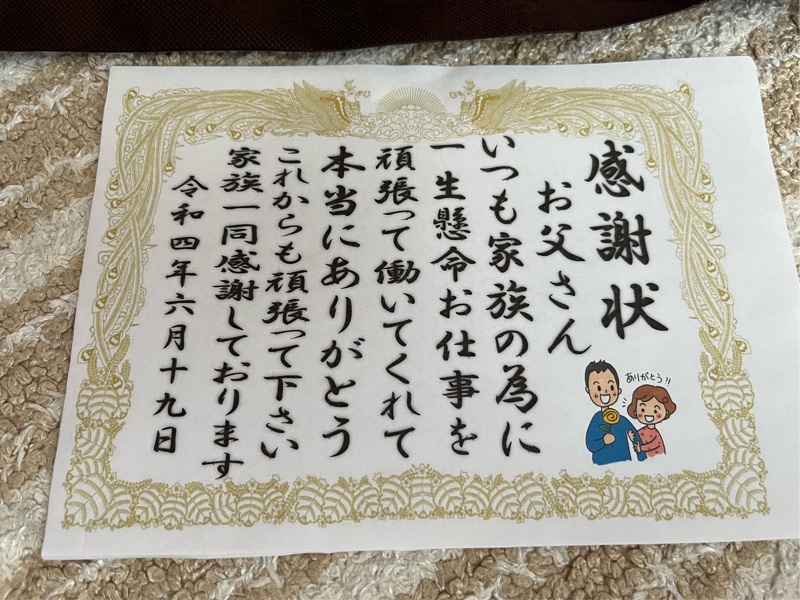 感謝状
お父さん
いつも家族の為に
一生懸命お仕事を
頑張って働いてくれて
本当にありがとう
これからも頑張って下さい
家族一同感謝しております
令和四年六月十九日
ありがとう!!